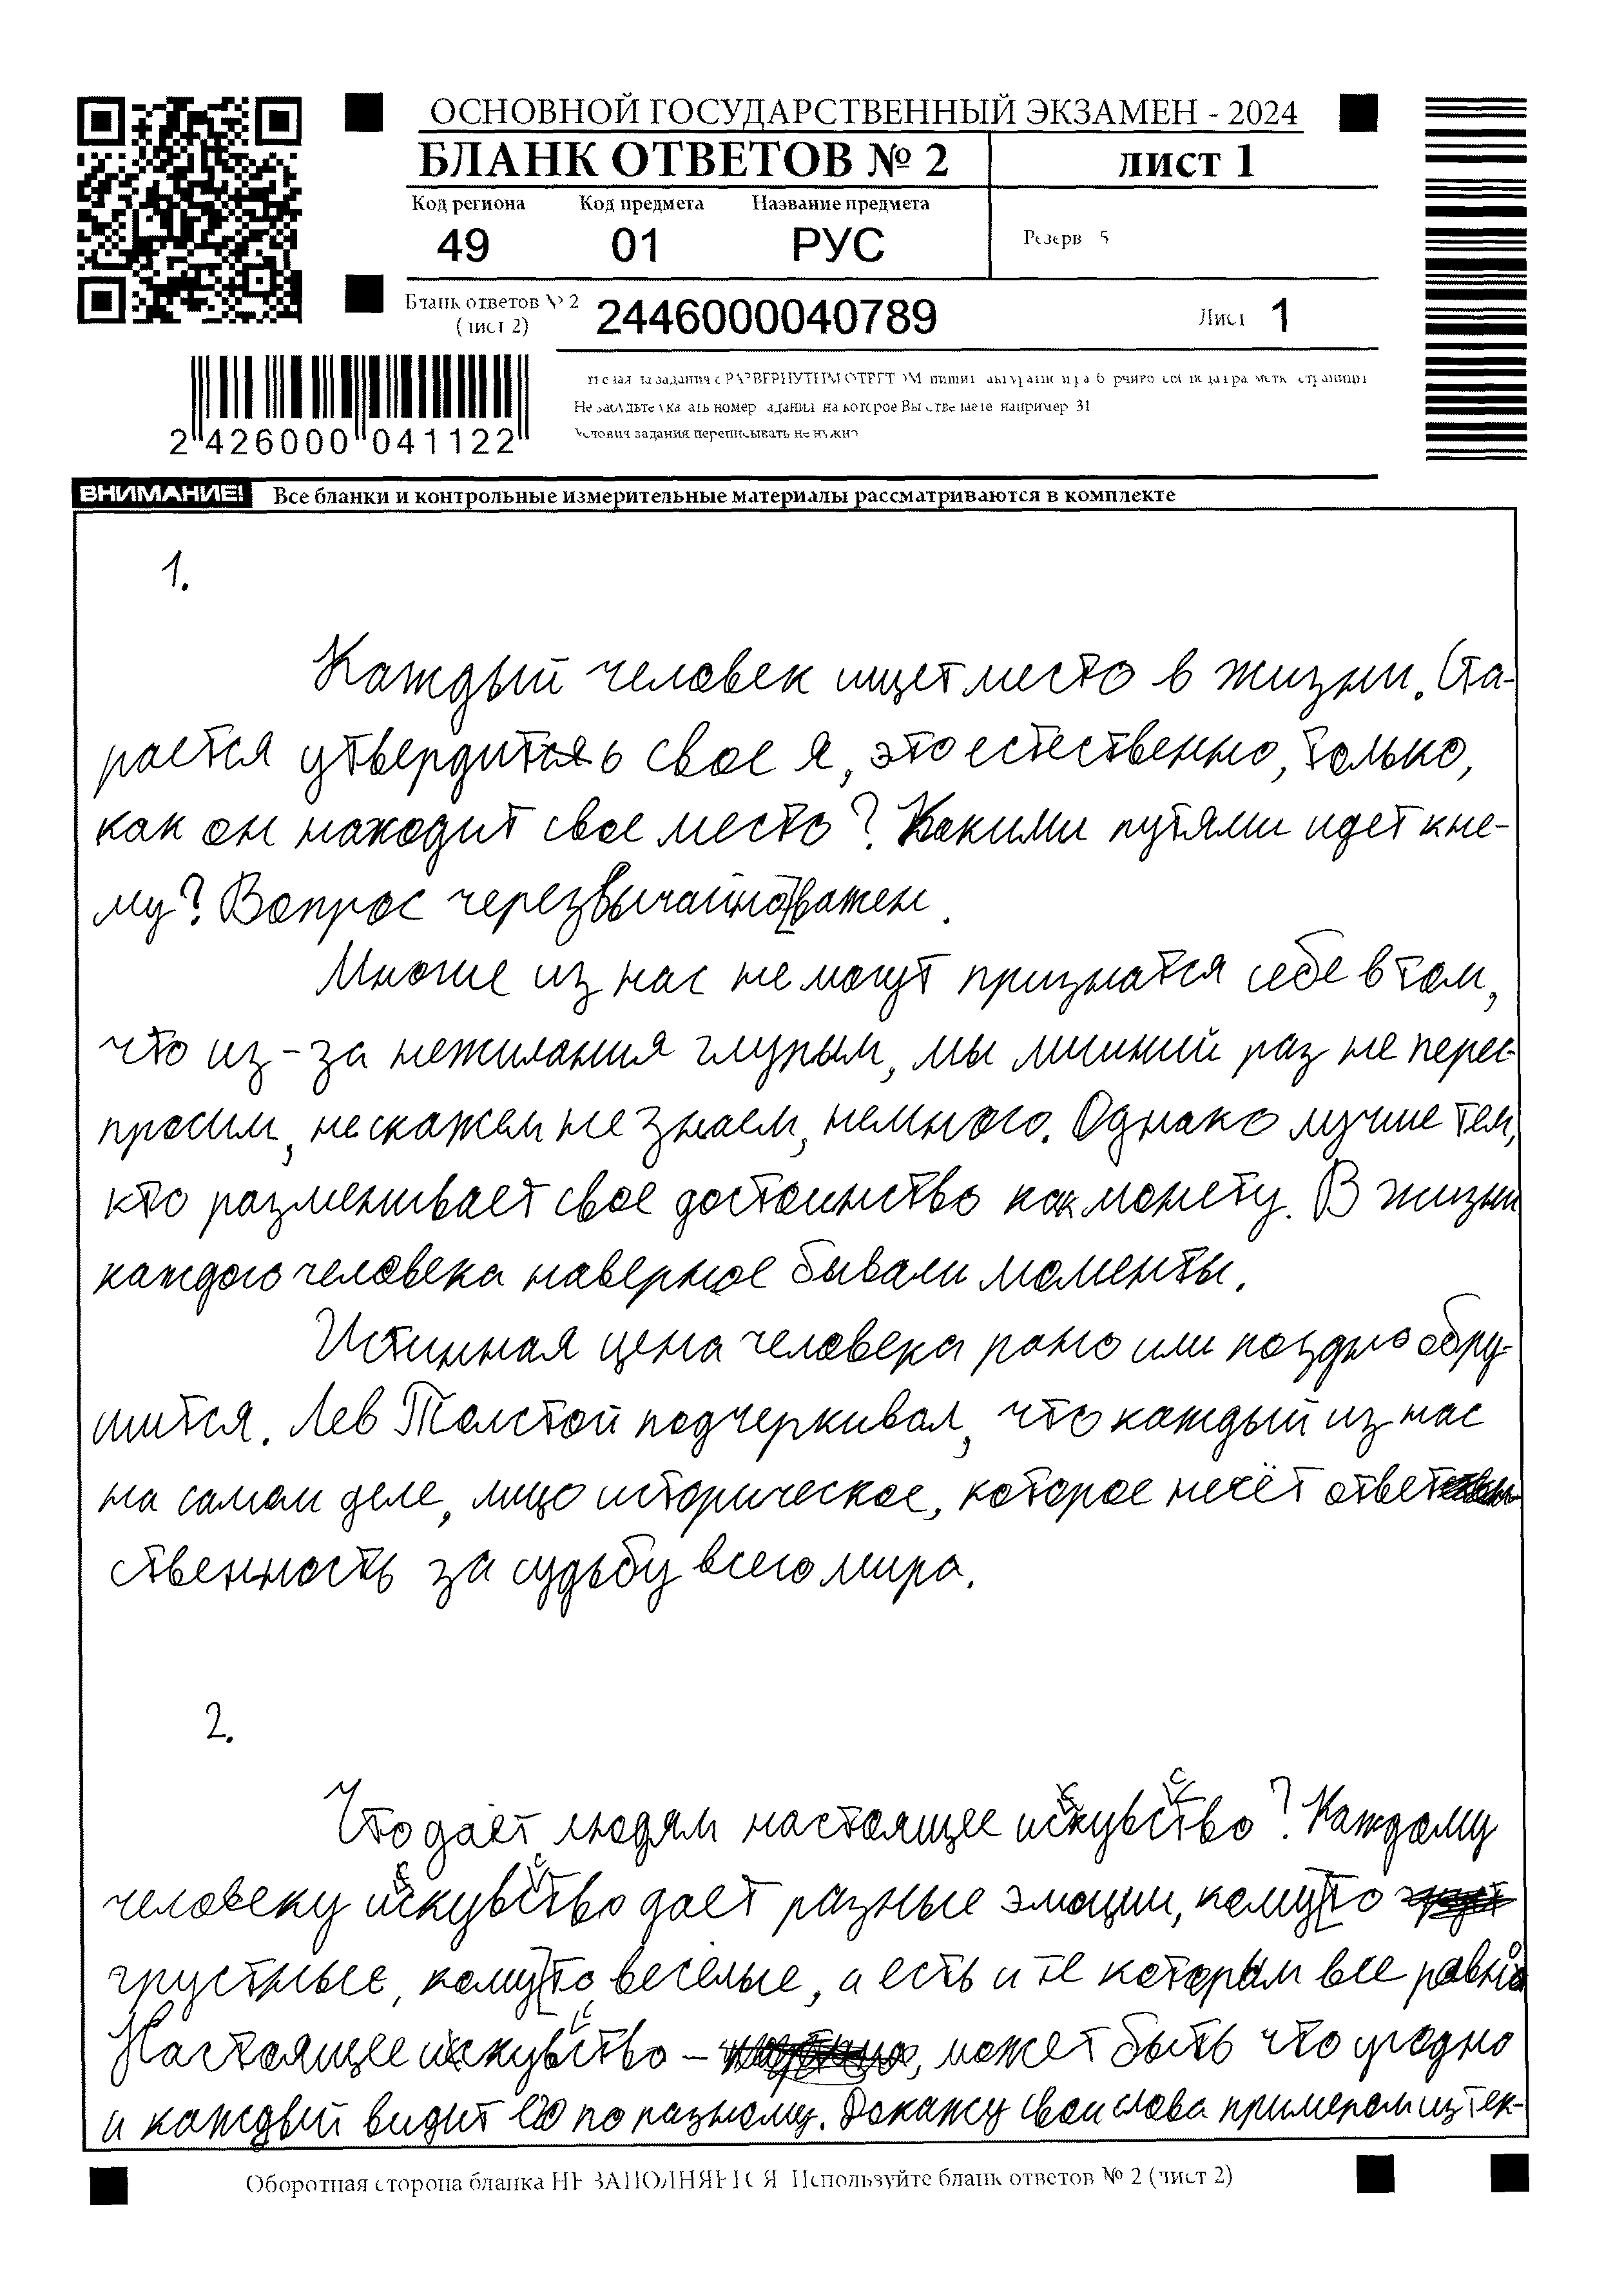 ОСНОВНОЙ ГОСУДАРСТВЕННЫЙ ЭКЗАМЕН - 2024
БЛАНК ОТВЕТОВ № 2 лист 1
Код региона Код предмета Название предмета
49 01 РУС Резерв 5
Бланк ответов № 2
(лист 2) 2446000040789 Лист 1
Не забудьте указать номер задания на которое Вы отвечаете например 31
Условия задания переписывать не нужно
2 426000 041122
ВНИМАНИЕ! Все бланки и контрольные измерительные материалы рассматриваются в комплекте
1.
Каждый человек ищет место в жизни. Ста-
рается утвердить свое я, это естественно, только,
как он находит свое место? Какими путями идет кне-
му? Вопрос черезвычайно важен.
Многие из нас не могут признатся себе в том,
что из-за нежилания глупым, мы лишний раз не перес-
просим, нескажем не знаем, немного. Однако лучше тем,
кто разменивает свое достоинство как монету. В жизни
каждого человека наверное бывали моменты.
Истинная цена человека рано или поздно обру-
шится. Лев Толстой подчеркивал, что каждый из нас
на самом деле, лицо историческое, которое несёт ответ
ственность за судьбу всего мира.
2.
Что даёт людям настоящее искувство? Каждому
человеку искувство дает разные эмоции, кому то
грустные, кому то весёлые, а есть и те которым все равно
Настоящее искувство - , может быть что угодно
и каждый видит его по разному. Докажу свои слова примером из тек-
Оборотная сторона бланка НЕ ЗАПОЛНЯЕТСЯ Используйте бланк ответов № 2 (лист 2)